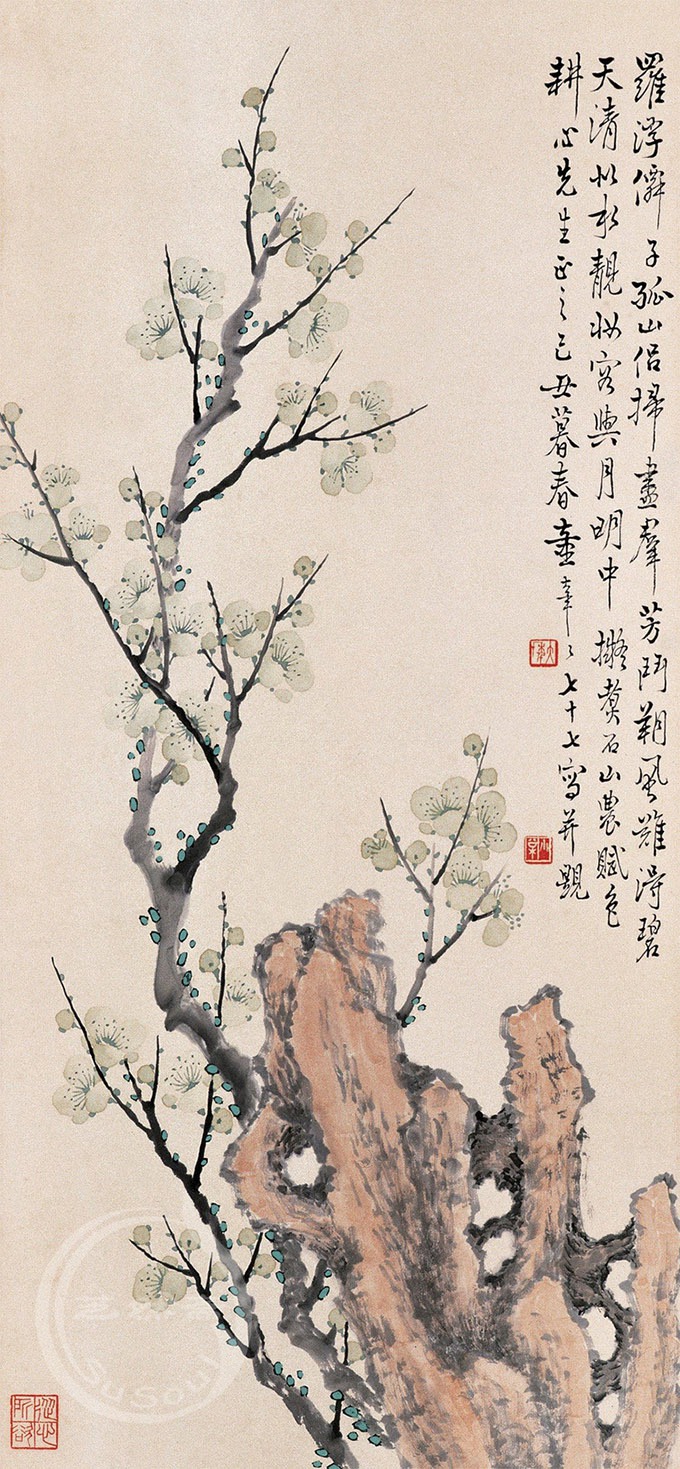 羅浮僊子孤山侶掃盡羣芳鬥朔風難得碧
天清似水靚妝容與月明中 擬煮石山農賦色
耕心先生正之己丑暮春年七十七寫并題
從心所欲